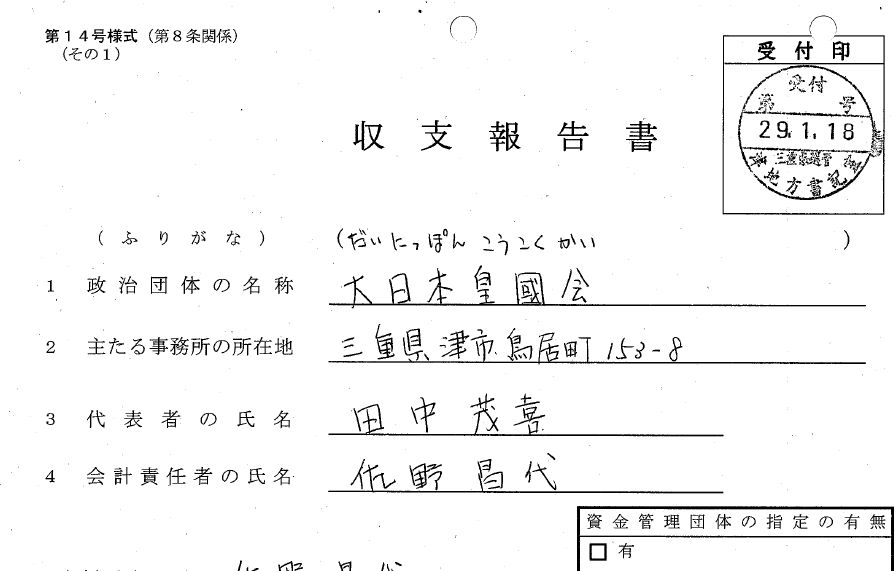 第14号様式（第8条関係）
（その1）
受付印
受付
第 号
29.1.18
三重県選管
地方書記
収支報告書
（ふりがな）
（だいにっぽん こうこくかい ）
1 政治団体の名称 大日本皇國会
2 主たる事務所の所在地 三重県津市鳥居町153-8
3 代表者の氏名 田中茂喜
4 会計責任者の氏名 佐野昌代
資金管理団体の指定の有無
□有